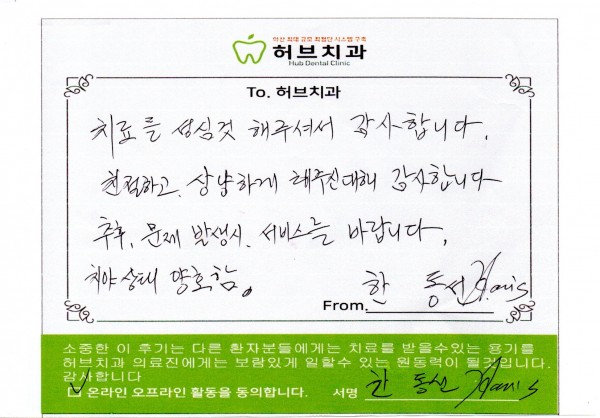 익산 최대 규모 최첨단 시스템 구축
허브치과
Hub Dental Clinic
To. 허브치과
치료를 성심껏 해주셔서 감사합니다.
친절하고, 상냥하게 해주신대해 감사합니다
추후, 문제 발생시, 서비스를 바랍니다.
치아 상태 양호함.
From. 한 동선 Hanis
소중한 이 후기는 다른 환자분들에게는 치료를 받을수있는 용기를
허브치과 의료진에게는 보람있게 일할수 있는 원동력이 될것입니다.
감사합니다
온라인 오프라인 활동을 동의합니다. 서명 한 동선 Hanis